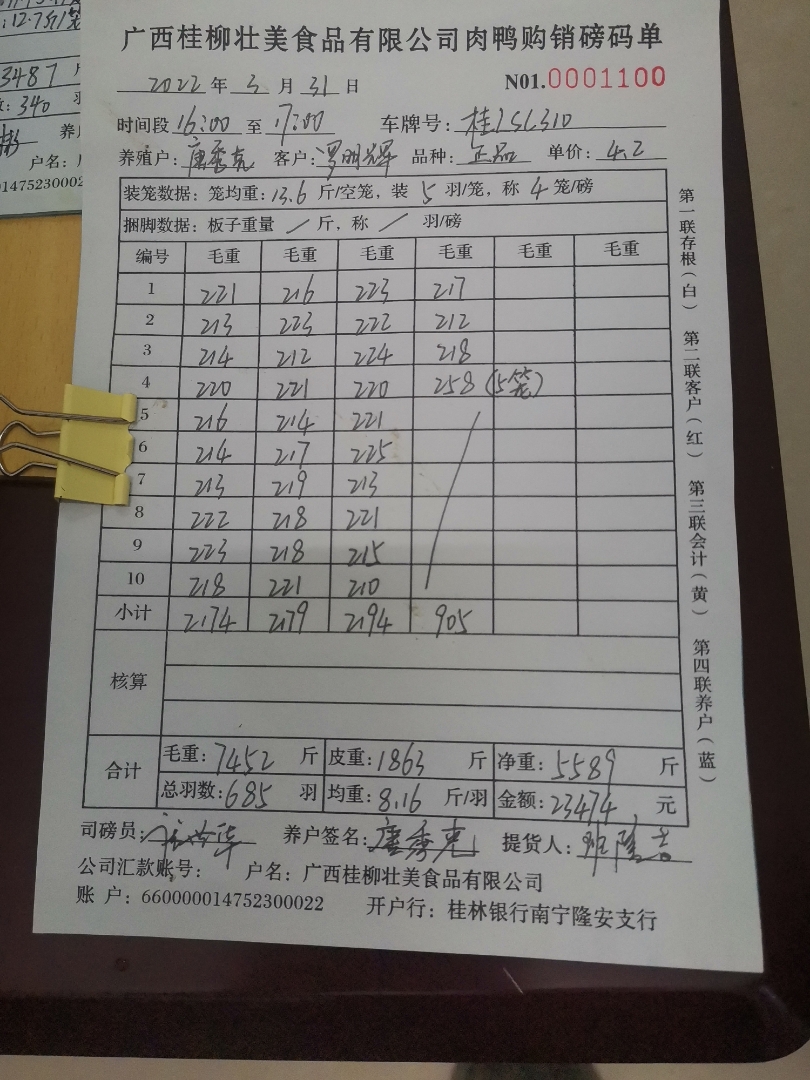 :12.7斤/笼
3487 斤
数:340 羽
养户
户名:
0147523000
广西桂柳壮美食品有限公司肉鸭购销磅码单
2022 年 3 月 31 日 N01.0001100
时间段 16:00 至 17:00 车牌号:
养殖户:唐秀克 客户:罗明辉 品种:正品 单价:4.2
装笼数据:笼均重:13.6 斤/空笼,装 5 羽/笼,称 4 笼/磅
捆脚数据:板子重量 / 斤,称 / 羽/磅
编号 毛重 毛重 毛重 毛重 毛重 毛重
1 221 216 223 217
2 213 223 222 212
3 214 212 224 218
4 220 221 220 258(5笼)
5 216 214 221
6 214 217 225
7 213 219 213
8 222 218 221
9 223 218 215
10 218 221 210
小计 2174 2179 2194 905
核算
合计 毛重:7452 斤 皮重:1863 斤 净重:5589 斤
总羽数:685 羽 均重:8.16 斤/羽 金额:23474 元
司磅员: 养户签名:唐秀克 提货人:
公司汇款账号: 户名:广西桂柳壮美食品有限公司
账 户:660000014752300022 开户行:桂林银行南宁隆安支行
第一联存根(白) 第二联客户(红) 第三联会计(黄) 第四联养户(蓝)